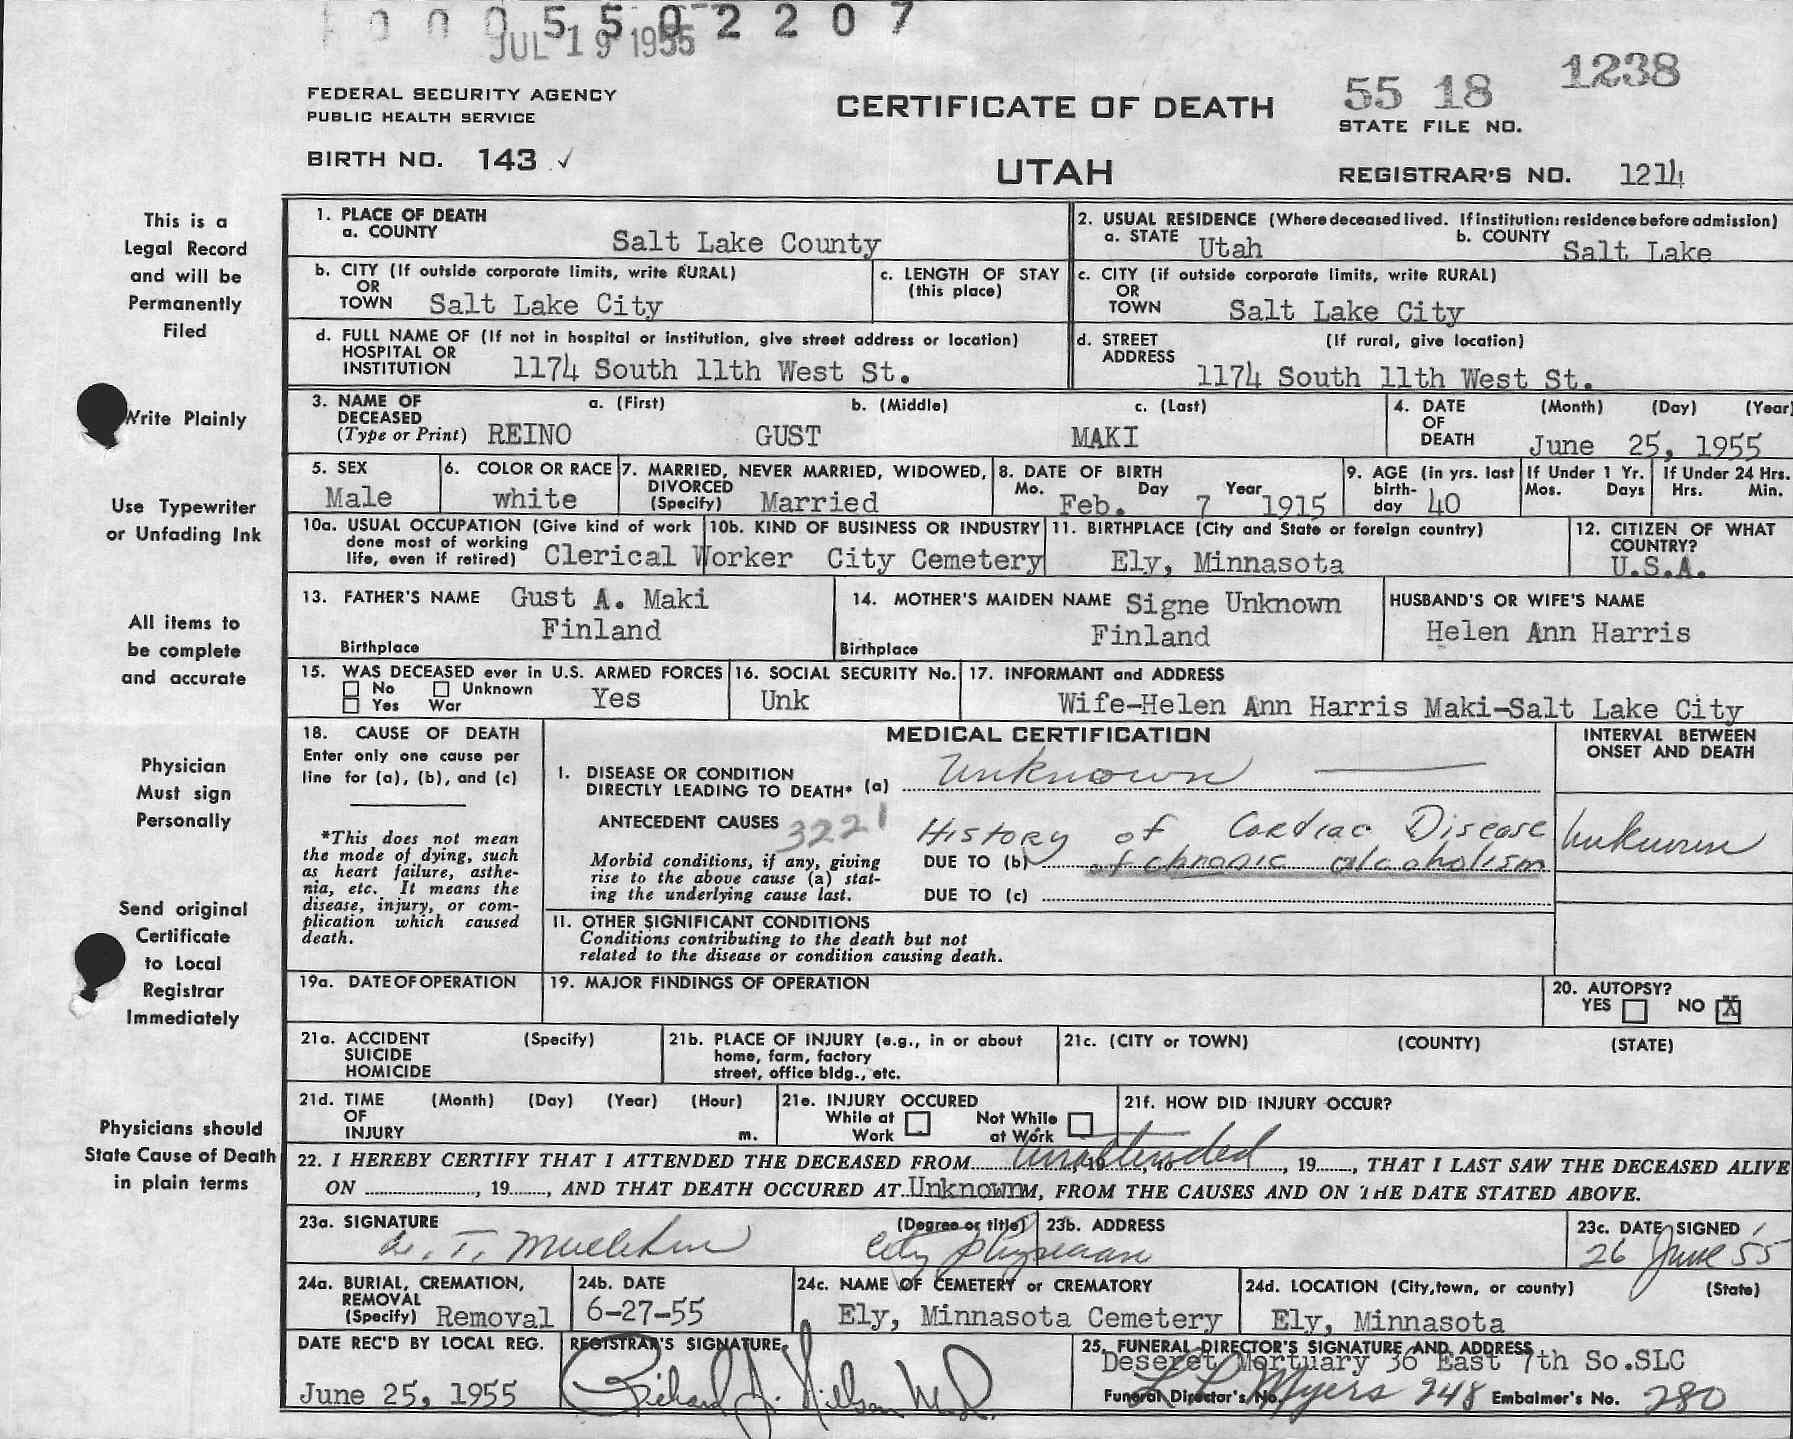 0 0 0 5 5 0 2 2 0 7
JUL 19 1955
FEDERAL SECURITY AGENCY
PUBLIC HEALTH SERVICE
BIRTH NO. 143 ✓
CERTIFICATE OF DEATH
UTAH
55 18 1238
STATE FILE NO.
REGISTRAR'S NO. 1214
This is a
Legal Record
and will be
Permanently
Filed
Write Plainly
Use Typewriter
or Unfading Ink
All items to
be complete
and accurate
Physician
Must sign
Personally
Send original
Certificate
to Local
Registrar
Immediately
Physicians should
State Cause of Death
in plain terms
1. PLACE OF DEATH
a. COUNTY Salt Lake County
2. USUAL RESIDENCE (Where deceased lived. If institution: residence before admission)
a. STATE Utah b. COUNTY Salt Lake
b. CITY (If outside corporate limits, write RURAL)
OR
TOWN Salt Lake City
c. LENGTH OF STAY
(this place)
c. CITY (if outside corporate limits, write RURAL)
OR
TOWN Salt Lake City
d. FULL NAME OF (If not in hospital or institution, give street address or location)
HOSPITAL OR
INSTITUTION 1174 South 11th West St.
d. STREET (If rural, give location)
ADDRESS
1174 South 11th West St.
3. NAME OF a. (First) b. (Middle) c. (Last)
DECEASED
(Type or Print) REINO GUST MAKI
4. DATE (Month) (Day) (Year)
OF
DEATH June 25, 1955
5. SEX
Male
6. COLOR OR RACE
white
7. MARRIED, NEVER MARRIED, WIDOWED,
DIVORCED
(Specify) Married
8. DATE OF BIRTH
Mo. Day Year
Feb. 7 1915
9. AGE (in yrs. last
birth-
day 40
If Under 1 Yr.
Mos. Days
If Under 24 Hrs.
Hrs. Min.
10a. USUAL OCCUPATION (Give kind of work
done most of working
life, even if retired) Clerical Worker
10b. KIND OF BUSINESS OR INDUSTRY
City Cemetery
11. BIRTHPLACE (City and State or foreign country)
Ely, Minnasota
12. CITIZEN OF WHAT
COUNTRY?
U.S.A.
13. FATHER'S NAME Gust A. Maki
Finland
Birthplace
14. MOTHER'S MAIDEN NAME Signe Unknown
Finland
Birthplace
HUSBAND'S OR WIFE'S NAME
Helen Ann Harris
15. WAS DECEASED ever in U.S. ARMED FORCES
No Unknown
Yes War Yes
16. SOCIAL SECURITY No.
Unk
17. INFORMANT and ADDRESS
Wife-Helen Ann Harris Maki-Salt Lake City
18. CAUSE OF DEATH
Enter only one cause per
line for (a), (b), and (c)
*This does not mean
the mode of dying, such
as heart failure, asthe-
nia, etc. It means the
disease, injury, or com-
plication which caused
death.
MEDICAL CERTIFICATION
I. DISEASE OR CONDITION
DIRECTLY LEADING TO DEATH* (a) Unknown
ANTECEDENT CAUSES 3221
History of Cardiac Disease
Morbid conditions, if any, giving
rise to the above cause (a) stat-
ing the underlying cause last.
DUE TO (b) of chronic alcoholism
DUE TO (c)
II. OTHER SIGNIFICANT CONDITIONS
Conditions contributing to the death but not
related to the disease or condition causing death.
INTERVAL BETWEEN
ONSET AND DEATH
Unknown
19a. DATE OF OPERATION
19. MAJOR FINDINGS OF OPERATION
20. AUTOPSY?
YES NO X
21a. ACCIDENT (Specify)
SUICIDE
HOMICIDE
21b. PLACE OF INJURY (e.g., in or about
home, farm, factory
street, office bldg., etc.
21c. (CITY or TOWN) (COUNTY) (STATE)
21d. TIME (Month) (Day) (Year) (Hour)
OF
INJURY m.
21e. INJURY OCCURED
While at Not While
Work at Work
21f. HOW DID INJURY OCCUR?
22. I HEREBY CERTIFY THAT I ATTENDED THE DECEASED FROM Unattended, 19, to, 19, THAT I LAST SAW THE DECEASED ALIVE
ON, 19, AND THAT DEATH OCCURED AT Unknown M, FROM THE CAUSES AND ON THE DATE STATED ABOVE.
23a. SIGNATURE (Degree or title)
City Physician
23b. ADDRESS
23c. DATE SIGNED
26 June 55
24a. BURIAL, CREMATION,
REMOVAL
(Specify) Removal
24b. DATE
6-27-55
24c. NAME OF CEMETERY or CREMATORY
Ely, Minnasota Cemetery
24d. LOCATION (City, town, or county) (State)
Ely, Minnasota
DATE REC'D BY LOCAL REG.
June 25, 1955
REGISTRAR'S SIGNATURE
Richard J. Nilson M.D.
25. FUNERAL DIRECTOR'S SIGNATURE AND ADDRESS
Deseret Mortuary 36 East 7th So.SLC
Funeral Director's No. Myers 248 Embalmer's No. 280